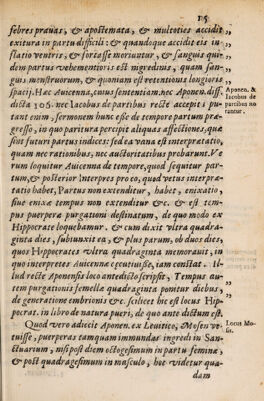 115
febres prauas, & apostemata, & multoties accidit
exitura in partu difficili: & quandoque accidit eis in-
flatio ventris, & forcasse moriuntur, & sanguis qui-
dem partus vehementioris est ingredinis, quam san-
guis menstruorum, & quoniam est retentionis longioris
spacij. Hæc Auicenna, cuius sententiam. nec Aponen. diff.
dicta 106. nec Iacobus de partibus recte accepit: pu-
tant enim, sermonem hunc esse de tempore partum præ-
gresso, in quo paritura percipit aliquas affectiones, quæ
sint futuri partus indices: sed ea vana est interpretatio,
quam nec rationibus, nec auctoritatibus probarunt. Ve-
rum loquitur Auicenna de tempore, quod sequitur par-
tum, & posterior interpres pro eo, quod vetus interpre-
tatio habet, Partus non extenditur, habet, enixatio,
siue enixæ tempus non extenditur &c. & est tem-
pus puerperæ purgationi destinatum, de quo modo ex
Hippocrate loquebamur. & cum dixit vltra quadra-
ginta dies, subiunxit ea, & plus parum, ob duos dies,
quos Hippocrates vltra quadraginta memorauit, in
quo interpretes Auicennæ cæcutiisse, iam constat. Il-
lud recte Aponensis loco antedicto scripsit, Tempus au-
tem purgationis femellæ quadraginta ponitur diebus,
de generatione embrionis &c. scilicet hic est locus Hip-
pocrat. in libro de natura pueri, de quo ante dictum est.
Quod vero adiecit Aponen. ex Leuitico, Mosen ve-
tuisse, puerperas tamquam immundas ingredi in San-
ctuarium, nisi post diem octogesimum in partu femina,
& post quadragesimum in masculo, hoc videtur qua-
dam
Aponen. &
Iacobus de
partibus no
tantur.
Locus Mo-
sis.